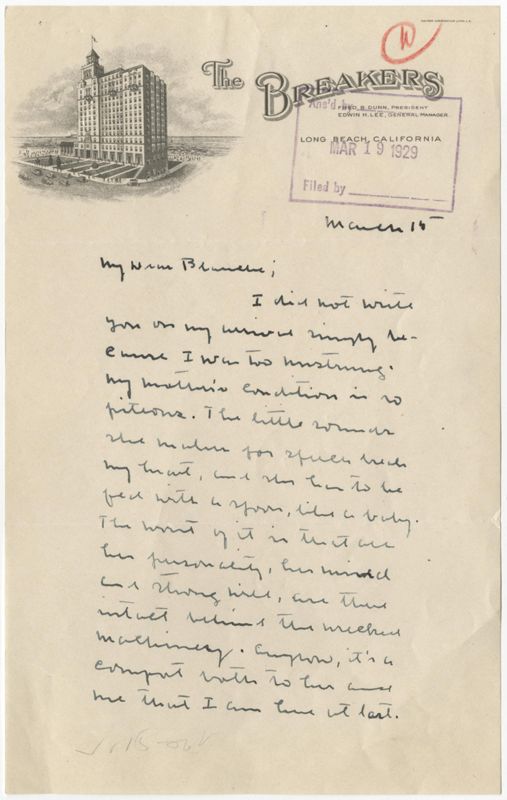 The BREAKERS
FRED B. DUNN, PRESIDENT
EDWIN H. LEE, GENERAL MANAGER
LONG BEACH, CALIFORNIA
Ans'd by
MAR 19 1929
Filed by
W
March 15
My Dear Blanche;
I did not write
you on my arrival simply be-
cause I was too unstrung.
My mother's condition is so
piteous. The little sounds
she makes for speech break
my heart, and she has to be
fed with a spoon, like a baby.
The worst of it is that all
her personality, her mind
and strong will, are there
intact behind the wrecked
machinery. Anyhow, it's a
comfort both to her and
me that I am here at last.